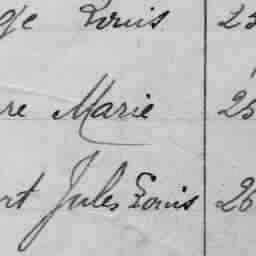 ge Louis 25
re Marie 25
rt Jules Louis 26